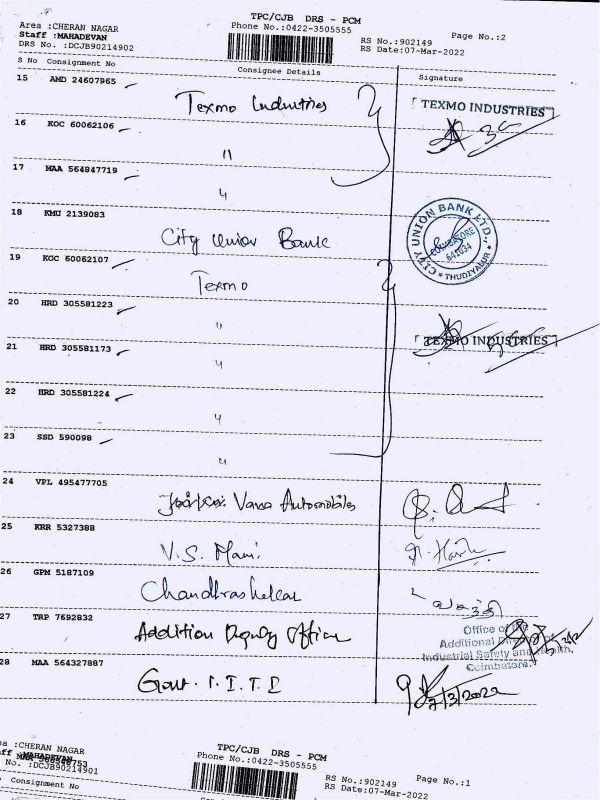 TPC/CJB DRS - PCM
Area :CHERAN NAGAR
Phone No.:0422-3505555
Staff :MAHADEVAN
RS No.:902149 Page No.:2
DRS No. :DCJB90214902
RS Date:07-Mar-2022
S No Consignment No Consignee Details Signature
15 AMD 24607965 Texmo Industries TEXMO INDUSTRIES
16 KOC 60062106 "
17 MAA 564847719 "
18 KMU 2139083 City Union Bank
CITY UNION BANK LTD.,
COIMBATORE
641034
* THUDIYALUR *
19 KOC 60062107 Texmo
20 HRD 305581223 "
TEXMO INDUSTRIES
21 HRD 305581173 "
22 HRD 305581224 "
23 SSD 590098 "
24 VPL 495477705 Vana Automobiles
25 KRR 5327388 V.S. Mani.
26 GPM 5187109 Chandhrashekar
27 TRP 7692832 Addition Deputy Officer
Office of the
Additional
Industrial Safety and Health,
Coimbatore.
28 MAA 564327887 Govt. I.T.I
7/3/2022
TPC/CJB DRS - PCM
:CHERAN NAGAR
Phone No.:0422-3505555
:MAHADEVAN
RS No.:902149 Page No.:1
No. :DCJB90214901
RS Date:07-Mar-2022
Consignment No Consignee Details Signature